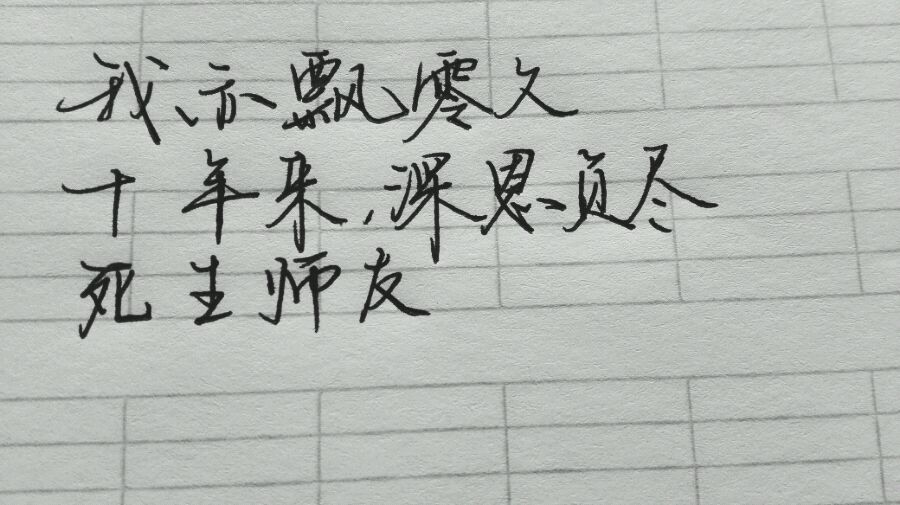 我亦飘零久
十年来,深恩负尽
死生师友